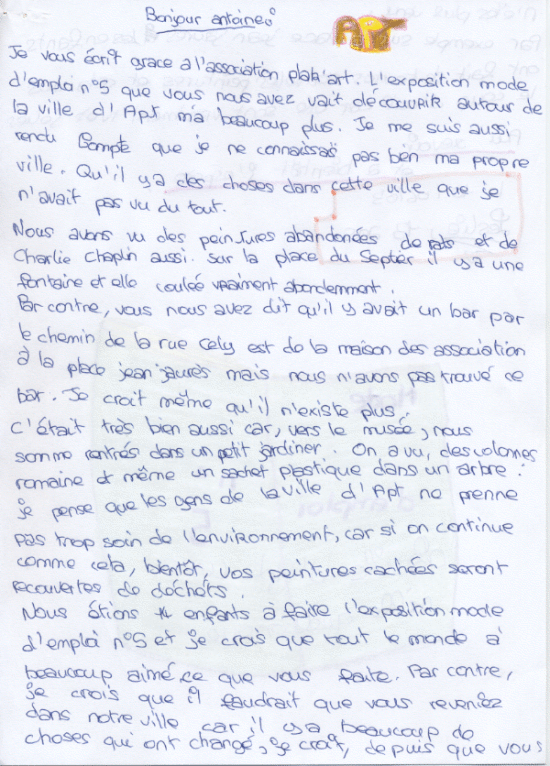 Bonjour antoine.
APT
Je vous écrit grace a l'association plaik'art. L'exposition mode
d'emploi n°5 que vous nous avez vait découvrir autour de
la ville d'Apt m'a beaucoup plus. Je me suis aussi
rendu Compte que je ne connaissais pas bien ma propre
ville. Qu'il y a des choses dans cette ville que je
n'avait pas vu du tout.
Nous avons vu des peintures abandonées de rats et de
Charlie Chaplin aussi. Sur la place du Septier il y a une
fontaine et elle coulée vraiment abondemment.
Par contre, vous nous avez dit qu'il y avait un bar par
le chemin de la rue Cely est de la maison des association
à la place jean jaurès mais nous n'avons pas trouvé ce
bar. Je croit même qu'il n'existe plus.
C'était très bien aussi car, vers le musée, nous
somme rentrés dans un petit jardiner. On a vu, des colonnes
romaine et même un sachet plastique dans un arbre :
je pense que les gens de la ville d'Apt ne prenne
pas trop soin de l'environnement, car si on continue
comme cela, bientôt, vos peintures cachées seront
recouvertes de déchets.
Nous étions enfants à faire l'exposition mode
d'emploi n°5 et je crois que tout le monde a
beaucoup aimé ce que vous faite. Par contre,
je crois que il faudrait que vous reveniez
dans notre ville car il y a beaucoup de
choses qui ont changé, je croit, depuis que vous